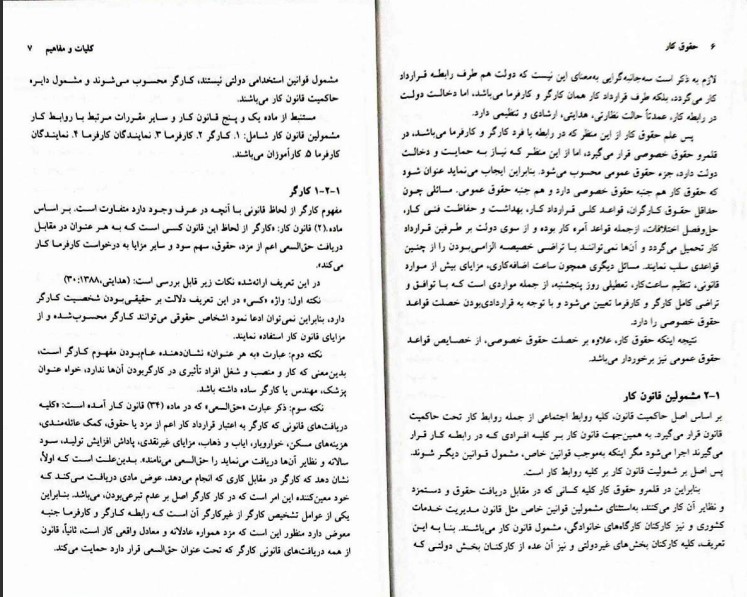 ۶ حقوق کار
لازم به ذکر است سه‌جانبه‌گرایی به‌معنای این نیست که دولت هم طرف رابطه قرارداد
کار می‌گردد، بلکه طرف قرارداد کار همان کارگر و کارفرما می‌باشد، اما دخالت دولت
در رابطه کار، عمدتاً حالت نظارتی، هدایتی، ارشادی و تنظیمی دارد.
پس علم حقوق کار از این منظر که در رابطه با فرد کارگر و کارفرما می‌باشد، در
قلمرو حقوق خصوصی قرار می‌گیرد، اما از این منظر که نیاز به حمایت و دخالت
دولت دارد، جزء حقوق عمومی محسوب می‌شود. بنابراین ایجاب می‌نماید عنوان شود
که حقوق کار هم جنبه حقوق خصوصی دارد و هم جنبه حقوق عمومی. مسائلی چون
حداقل حقوق کارگران، قواعد کلی قرارداد کار، بهداشت و حفاظت فنی کار،
حل‌وفصل اختلافات، ازجمله قواعد آمره کار بوده و از سوی دولت بر طرفین قرارداد
کار تحمیل می‌گردد و آن‌ها نمی‌توانند با تراضی خصیصه الزامی‌بودن را از چنین
قواعدی سلب نمایند. مسائل دیگری همچون ساعت اضافه‌کاری، مزایای بیش از موارد
قانونی، تنظیم ساعت‌کار، تعطیلی روز پنجشنبه، از جمله مواردی است که با توافق و
تراضی کامل کارگر و کارفرما تعیین می‌شود و با توجه به قراردادی‌بودن خصلت قواعد
حقوق خصوصی را دارد.
نتیجه اینکه حقوق کار، علاوه بر خصلت حقوق خصوصی، از خصایص قواعد
حقوق عمومی نیز برخوردار می‌باشد.
۱-۲ مشمولین قانون کار
بر اساس اصل حاکمیت قانون، کلیه روابط اجتماعی از جمله روابط کار تحت حاکمیت
قانون قرار می‌گیرد. به همین‌جهت قانون کار بر کلیه افرادی که در رابطه کار قرار
می‌گیرند اجرا می‌شود مگر اینکه به‌موجب قوانین خاص، مشمول قوانین دیگر شوند.
پس اصل بر شمولیت قانون کار بر کلیه روابط کار است.
بنابراین در قلمرو حقوق کار کلیه کسانی که در مقابل دریافت حقوق و دستمزد
و نظایر آن کار می‌کنند، به‌استثنای مشمولین قوانین خاص مثل قانون مدیریت خدمات
کشوری و نیز کارکنان کارگاه‌های خانوادگی، مشمول قانون کار می‌باشند. بنا به این
تعریف، کلیه کارکنان بخش‌های غیردولتی و نیز آن عده از کارکنان بخش دولتی که
کلیات و مفاهیم ۷
مشمول قوانین استخدامی دولتی نیستند، کارگر محسوب می‌شوند و مشمول دایره
حاکمیت قانون کار می‌باشند.
مستنبط از ماده یک و پنج قانون کار و سایر مقررات مرتبط با روابط کار
مشمولین قانون کار شامل: ۱. کارگر ۲. کارفرما ۳. نمایندگان کارفرما ۴. نمایندگان
کارفرما ۵. کارآموزان می‌باشند.
۱-۲-۱ کارگر
مفهوم کارگر از لحاظ قانونی با آنچه در عرف وجود دارد متفاوت است. بر اساس
ماده (۲) قانون کار: «کارگر از لحاظ این قانون کسی است که به هر عنوان در مقابل
دریافت حق‌السعی اعم از مزد، حقوق، سهم سود و سایر مزایا به درخواست کارفرما کار
می‌کند».
در این تعریف ارائه‌شده نکات زیر قابل بررسی است: (هدایتی،۱۳۸۸:۳۰)
نکته اول: واژه «کسی» در این تعریف دلالت بر حقیقی‌بودن شخصیت کارگر
دارد، بنابراین نمی‌توان ادعا نمود اشخاص حقوقی می‌توانند کارگر محسوب‌شده و از
مزایای قانون کار استفاده نمایند.
نکته دوم: عبارت «به هر عنوان» نشان‌دهنده عام‌بودن مفهوم کارگر است،
بدین‌معنی که کار و منصب و شغل افراد تأثیری در کارگربودن آن‌ها ندارد، خواه عنوان
پزشک، مهندس یا کارگر ساده داشته باشد.
نکته سوم: ذکر عبارت «حق‌السعی» که در ماده (۳۴) قانون کار آمده است: «کلیه
دریافت‌های قانونی که کارگر به اعتبار قرارداد کار اعم از مزد یا حقوق، کمک عائله‌مندی،
هزینه‌های مسکن، خواروبار، ایاب و ذهاب، مزایای غیرنقدی، پاداش افزایش تولید، سود
سالانه و نظایر آن‌ها دریافت می‌نماید را حق‌السعی می‌نامند». بدین‌علت است که اولاً،
نشان دهد که کارگر در مقابل کاری که انجام می‌دهد، عوض مادی دریافت می‌کند که
خود معین‌کننده این امر است که در کار کارگر اصل بر عدم تبرعی‌بودن، می‌باشد. بنابراین
یکی از عوامل تشخیص کارگر از غیرکارگر آن است که رابطه کارگر و کارفرما جنبه
معوض دارد منظور این است که مزد همواره عادلانه و معادل واقعی کار است، ثانیاً، قانون
از همه دریافت‌های قانونی کارگر که تحت عنوان حق‌السعی قرار دارد حمایت می‌کند.